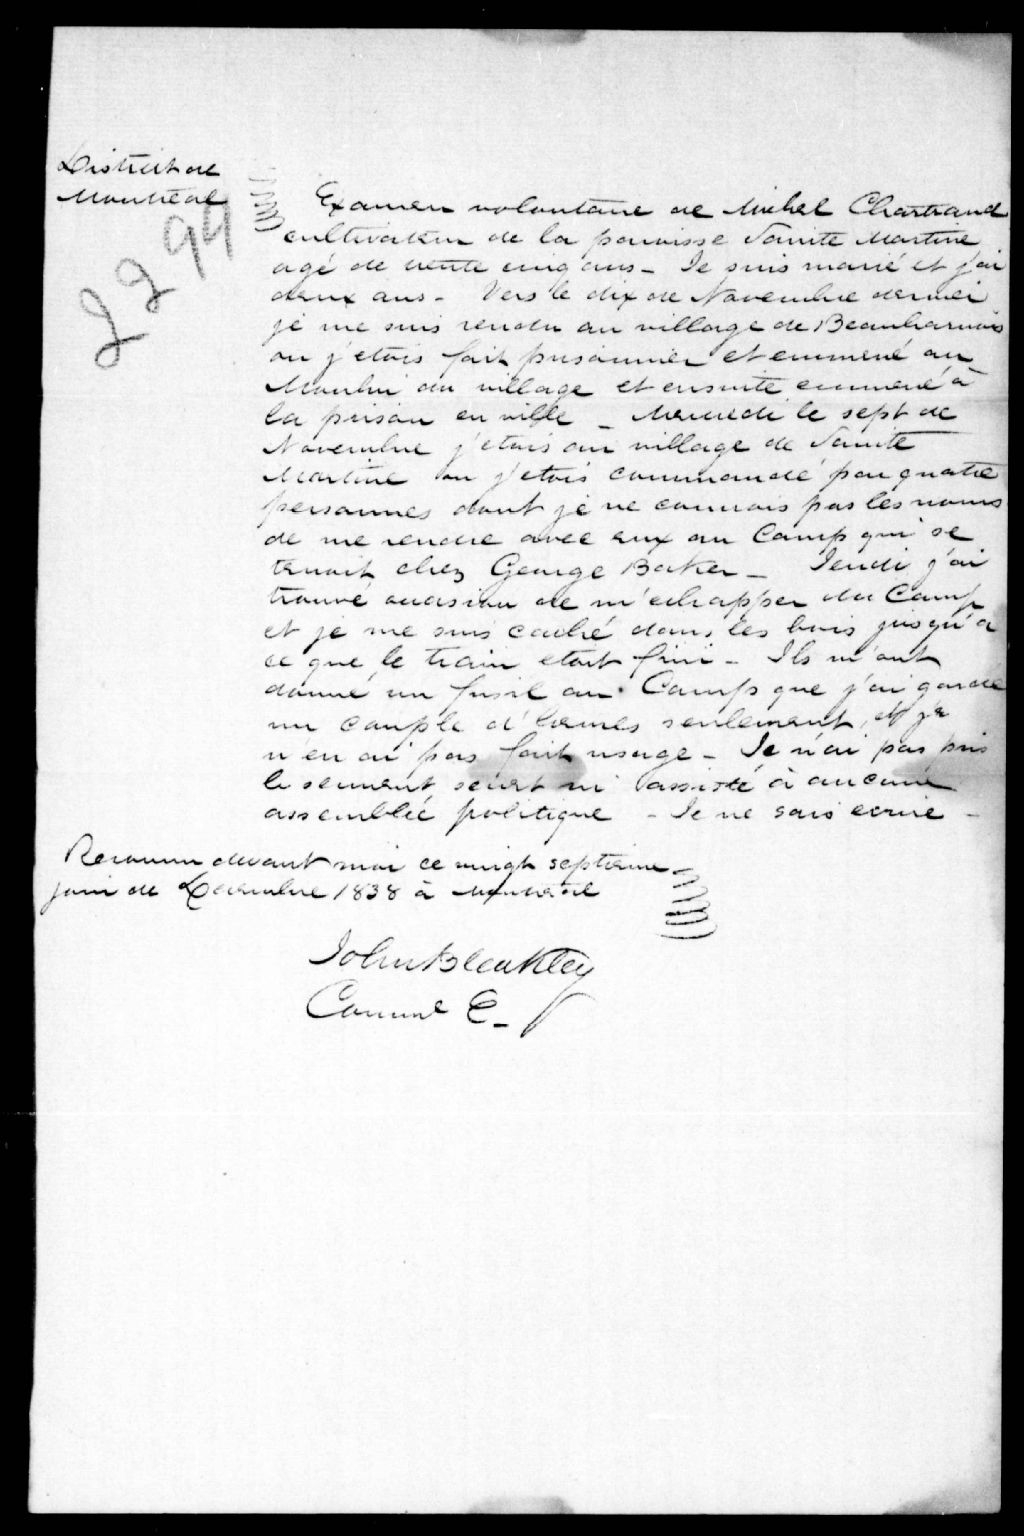 District de
Montréal
2299
Examen volontaire de Michel Chartrand
cultivateur de la paroisse Sainte Martine
agé de trente cinq ans - Je suis marié et j'ai
deux ans - Vers le dix de Novembre dernier
je me suis rendu au village de Beauharnois
ou j'etois fait prisonnier et emmené au
Moulin du village et ensuite emmené à
la prison en ville - Mercredi le sept de
Novembre j'etois au village de Sainte
Martine ou j'etois commandé par quatre
personnes dont je ne connois pas les noms
de me rendre avec eux au Camp qui se
tenoit chez George Baker - Jeudi j'ai
trouvé occasion de m'echapper du Camp
et je me suis caché dans les bois jusqu'a
ce que le train etoit fini - Ils m'ont
donné un fusil au Camp que j'ai gardé
un couple d'heures seulement, et je
n'en ai pas fait usage - Je n'ai pas pris
le serment secret ni assisté à aucune
assemblée politique - Je ne sais ecrire -
Reconnu devant moi ce vingt septieme
jour de Decembre 1838 à Montreal
John Bleakley
Comme E -